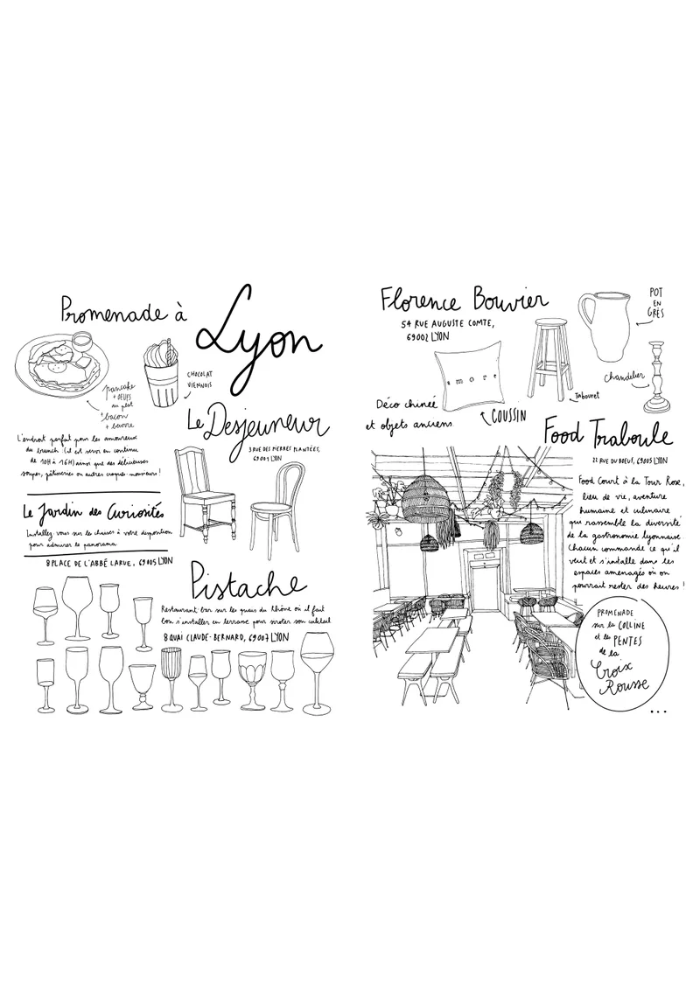 Promenade à
Lyon
pancake
+ œufs
au plat
bacon
+ beurre
CHOCOLAT
VIENNOIS
Le Desjeuneur
3 RUE DES PIERRES PLANTÉES,
69001 LYON
L'endroit parfait pour les amoureux
du brunch (il est servi en continu
de 10H à 16H) ainsi que des délicieuses
soupes, pâtisseries ou autres croques-monsieurs !
Le Jardin des Curiosités
Installez vous sur les chaises à votre disposition
pour admirer le panorama
8 PLACE DE L'ABBÉ LARUE, 69005 LYON
Pistache
Restaurant-bar sur les quais du Rhône où il fait
bon s'installer en terrasse pour siroter son cocktail
8 QUAI CLAUDE-BERNARD, 69007 LYON
Florence Bouvier
54 RUE AUGUSTE COMTE,
69002 LYON
POT
EN
GRÈS
amore
Tabouret
Chandelier
Déco chinée
et objets anciens
COUSSIN
Food Traboule
22 RUE DU BŒUF, 69005 LYON
Food Court à la Tour Rose,
lieu de vie, aventure
humaine et culinaire
qui rassemble la diversité
de la gastronomie lyonnaise
Chacun commande ce qu'il
veut et s'installe dans les
espaces aménagés où on
pourrait rester des heures !
PROMENADE
sur la COLLINE
et les PENTES
de la
Croix
Rousse
...